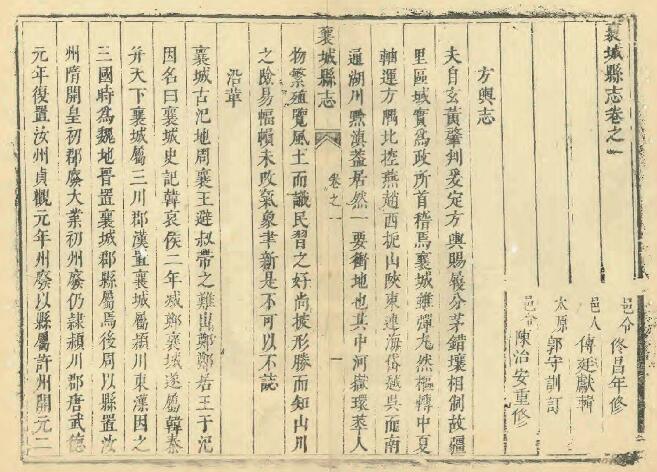 襄城縣志卷之一
邑令佟昌年修
邑人傅廷獻輯
太原郭守訓訂
邑令陳治安重修
方輿志
夫自玄黃肇判爰定方輿賜履分茅錯壤相制故疆
里區域實爲政所首稽焉襄城雖彈丸然樞轉中夏
轉運方隅北控燕趙西扼山陝東連海岱越吳而南
逼湖川黔滇蓋居然一要衝地也其中河嶽環萃人
襄城縣志
卷之一
一
物繁殖覽風土而識民習之好尚披形勝而知山川
之險易幅𢄙未改氣象聿新是不可以不誌
沿革
襄城古氾地周襄王避叔帶之難出鄭鄭若王于氾
因名曰襄城史記韓哀侯二年滅鄭襄城遂屬韓秦
并天下襄城屬三川郡漢置襄城屬潁川東漢因之
三國時爲魏地晉置襄城郡縣屬焉後周以縣置汝
州隋開皇初郡廢大業初州廢仍隸潁川郡唐武德
元年復置汝州貞觀元年州廢以縣屬許州開元二